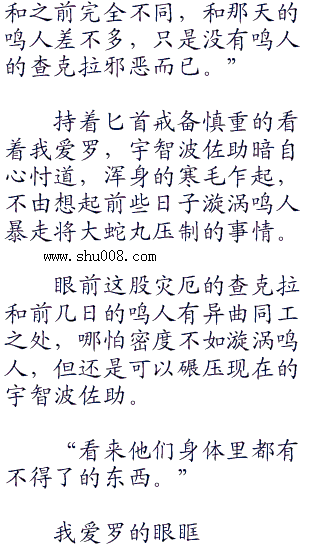 和之前完全不同，和那天的
鸣人差不多，只是没有鸣人
的查克拉邪恶而已。”
持着匕首戒备慎重的看
着我爱罗，宇智波佐助暗自
心忖道，浑身的寒毛乍起，
不由想起前些日子漩涡鸣人
暴走将大蛇丸压制的事情。
www.shu008.com
眼前这股灾厄的查克拉
和前几日的鸣人有异曲同工
之处，哪怕密度不如漩涡鸣
人，但还是可以碾压现在的
宇智波佐助。
“看来他们身体里都有
不得了的东西。”
我爱罗的眼眶